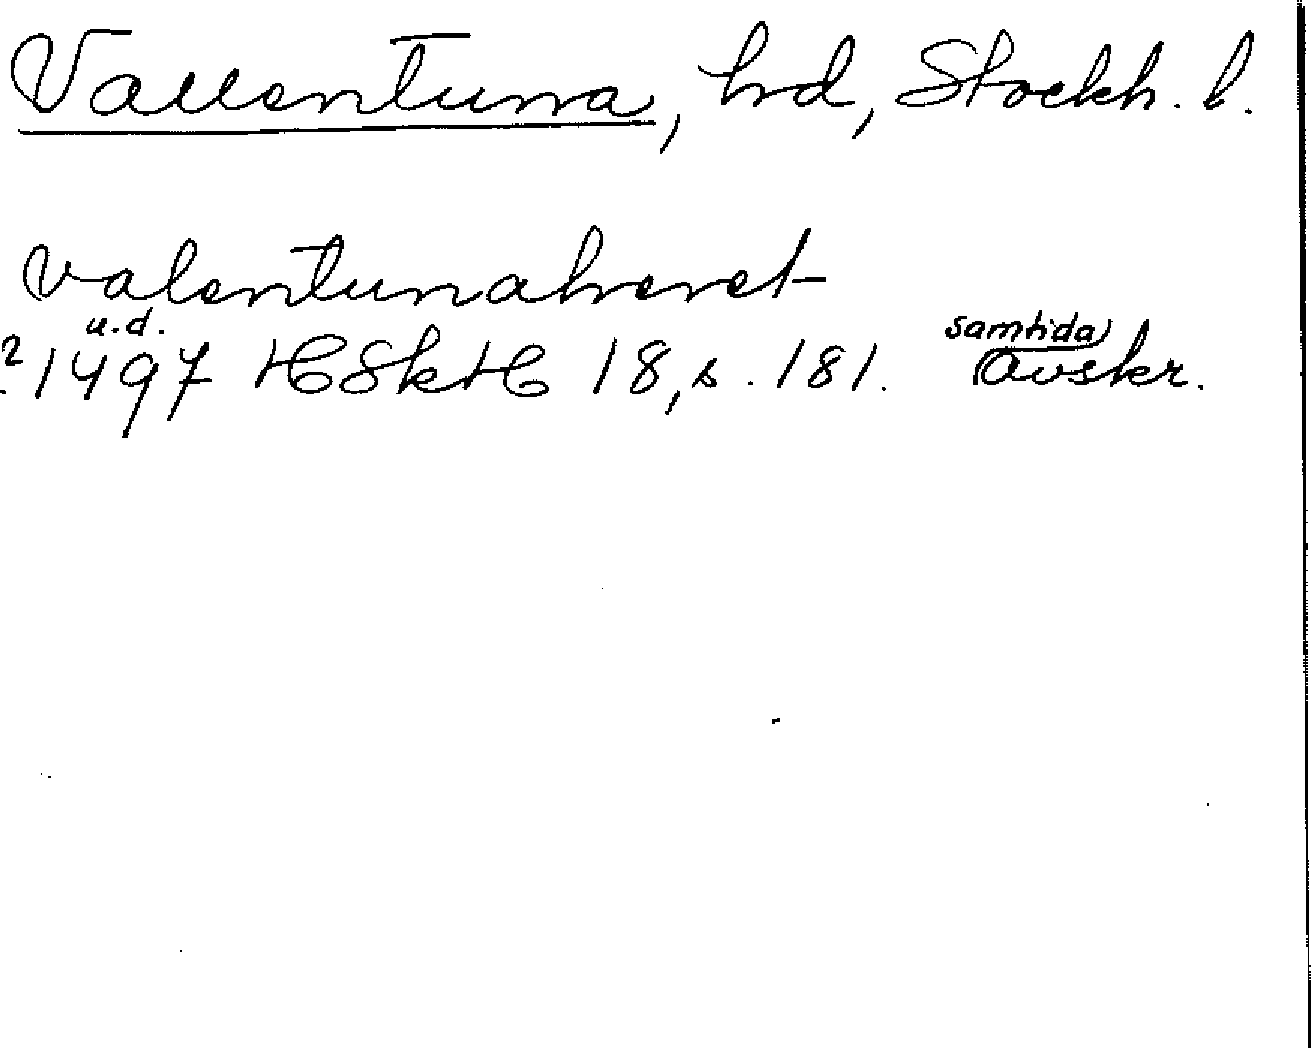 Vallentuna, hd, Stockh. l.
valentunaheret
u.d. samtida
? 1497 HSkH 18, s. 181. avskr.